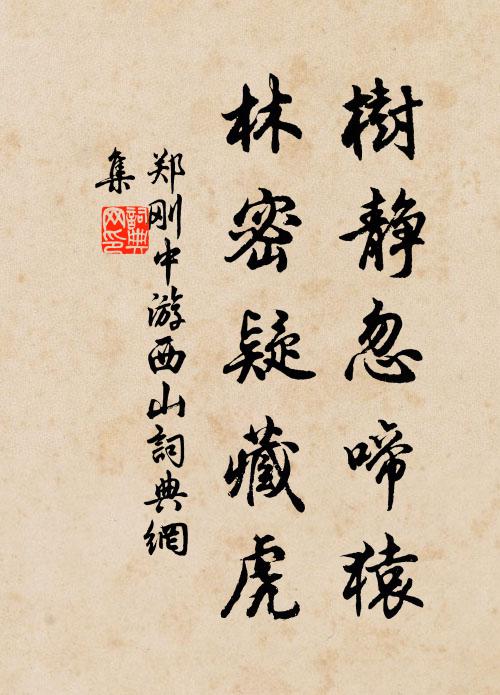 樹静忽啼猿
林密疑藏虎
郑刚中游西山詞典網
集
詞典
网印